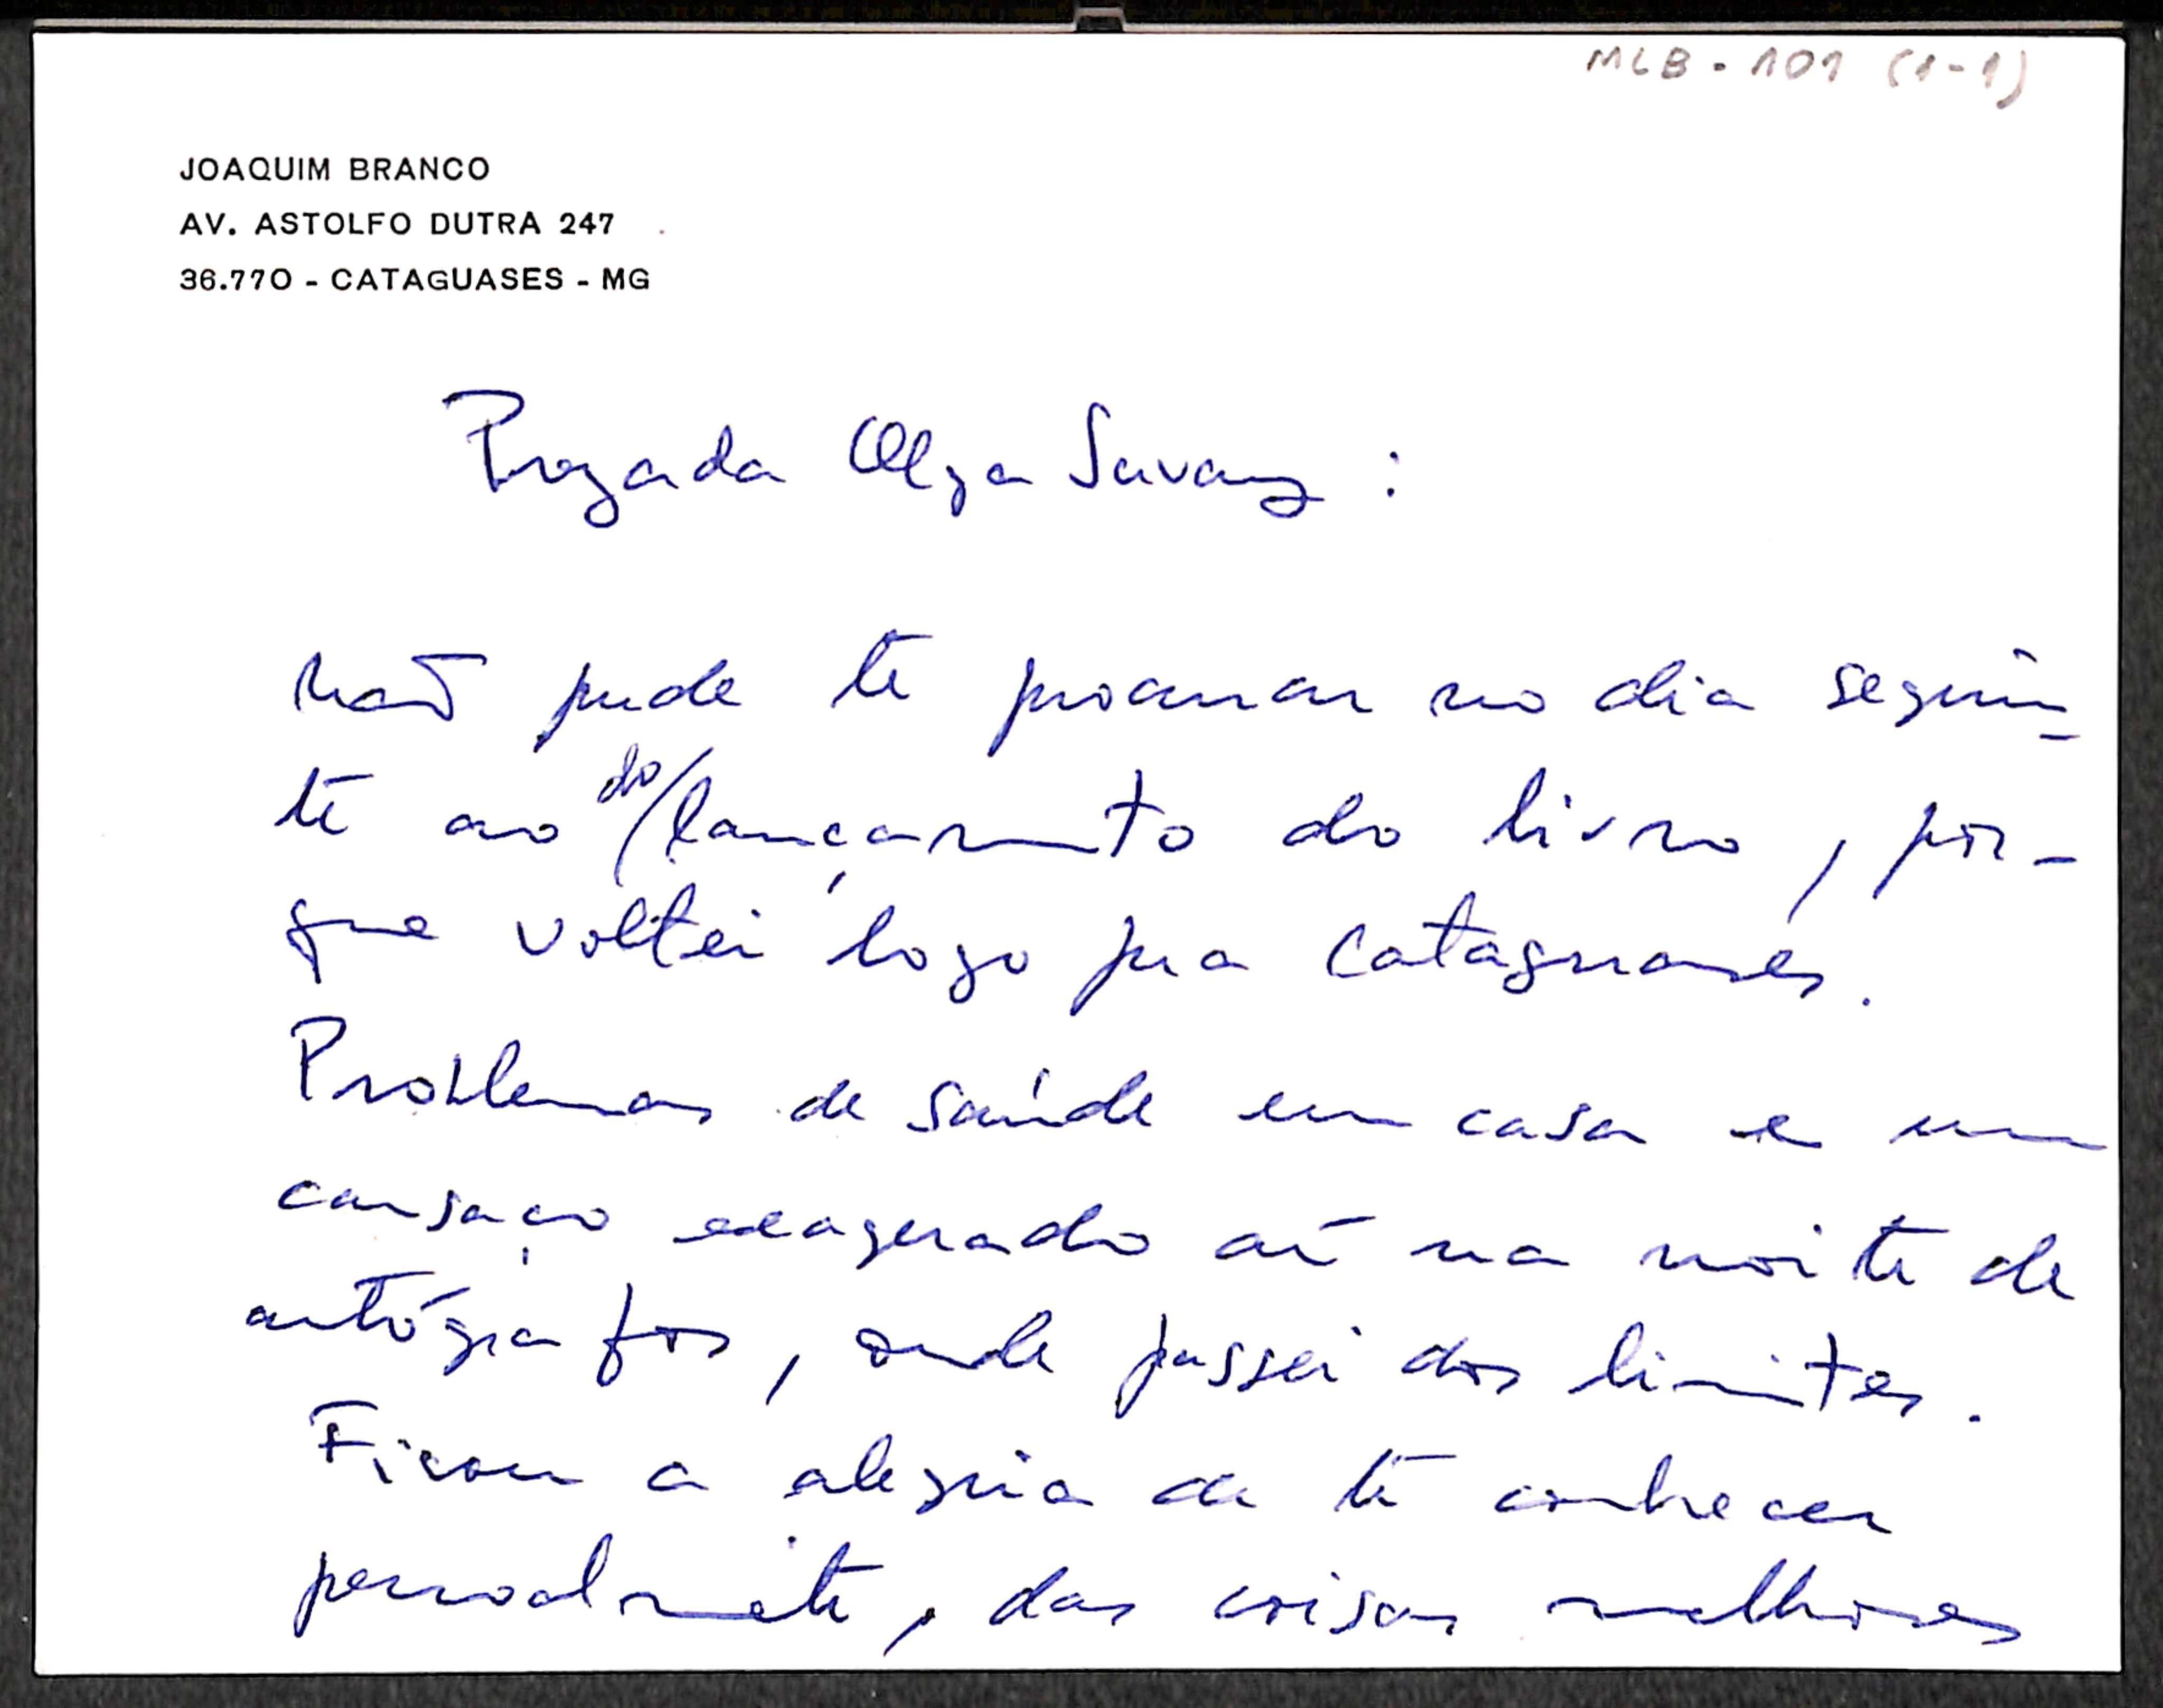 MLB - 101 (1-1)
JOAQUIM BRANCO
AV. ASTOLFO DUTRA 247
36.770 - CATAGUASES - MG
Prezada Olga Savary:
não pude te procurar no dia seguin-
te ao do lançamento do livro, por-
que voltei logo pra Cataguases.
Problemas de saúde em casa e um
cansaço exagerado até na noite de
autógrafos, onde passei dos limites.
Ficou a alegria de te conhecer
pessoalmente, das coisas melhores